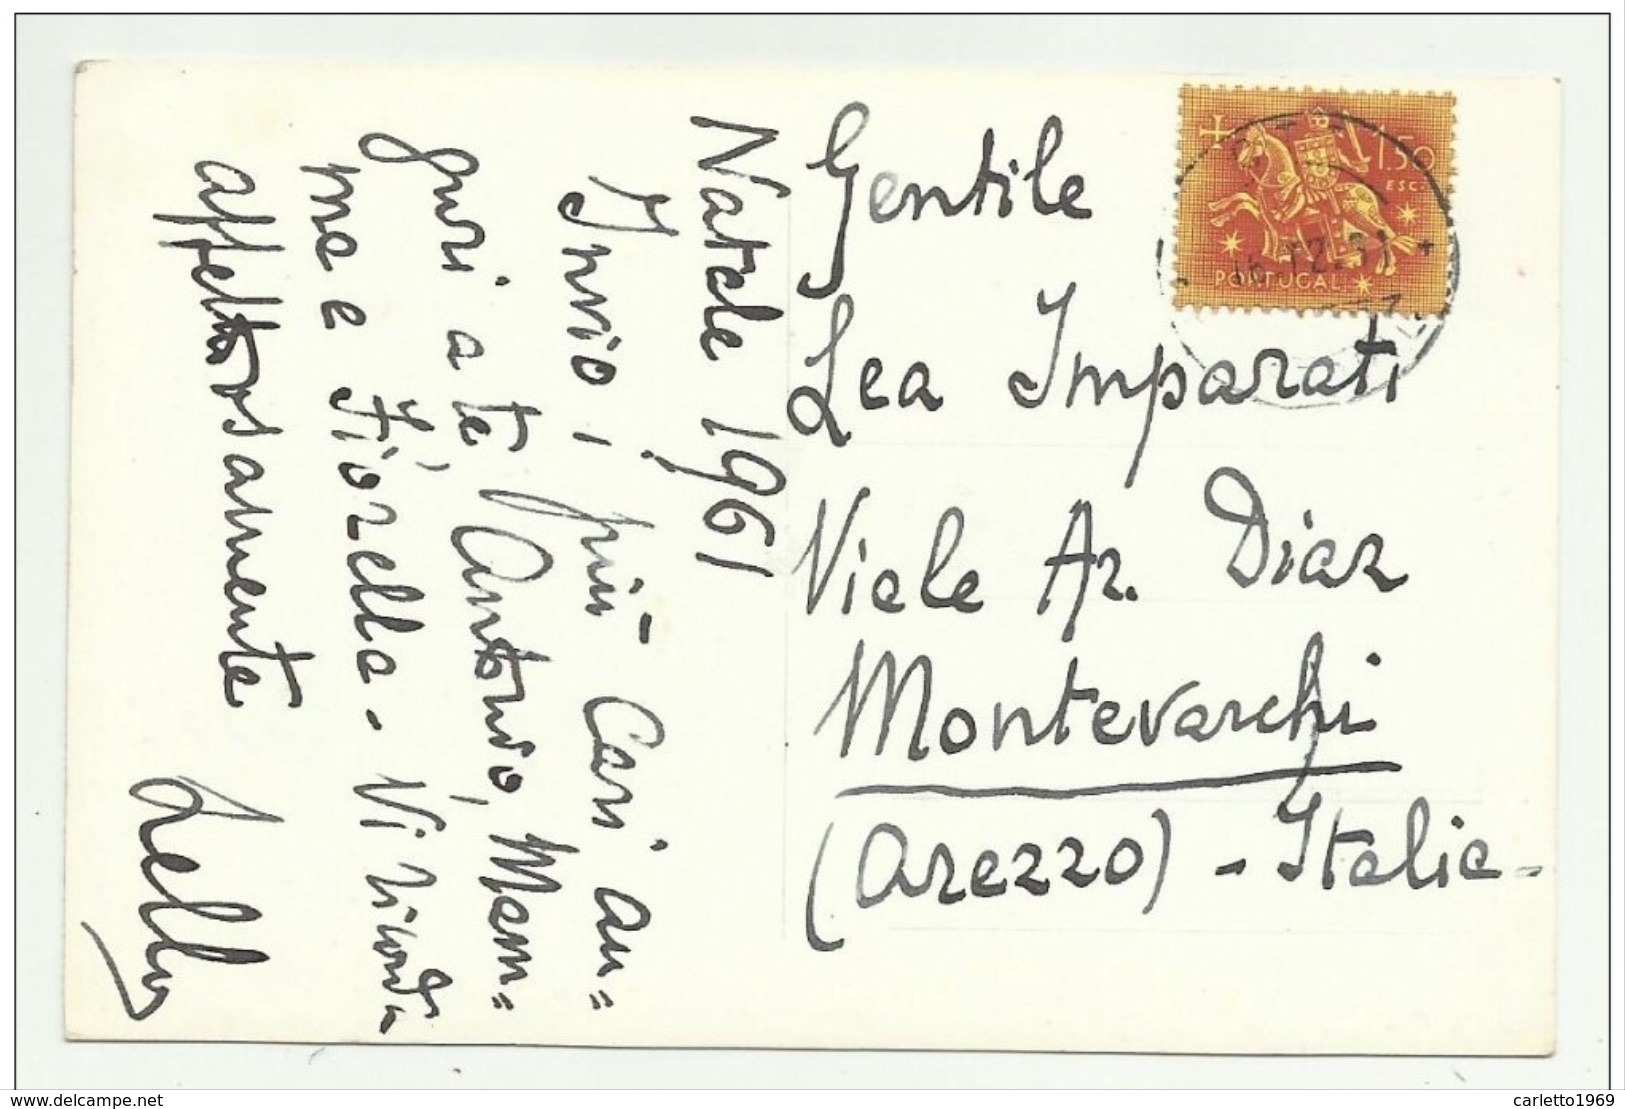 Natale 1961
Invio i più cari au=
guri a te, Antonio, Mam=
ma e Fiorella - Vi ricordo
affettuosamente
Lelly
Gentile
Lea Imparati
Viale Ar. Diaz
Montevarchi
(Arezzo) - Italia -
1$50
ESC.
PORTUGAL
delcampe.net
carletto1969